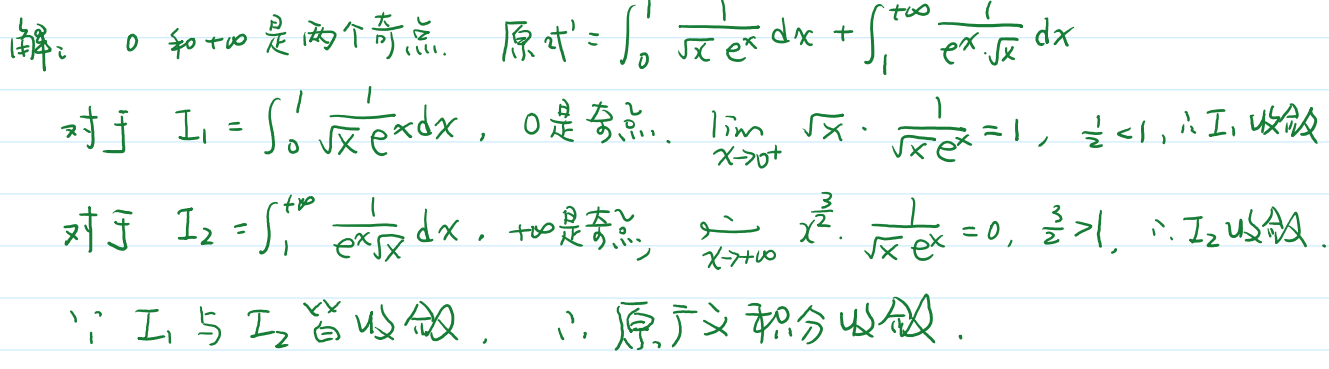 解: 0 和 +∞ 是两个奇点. 原式 = ∫₀¹ 1/(√x e^x) dx + ∫₁^{+∞} 1/(e^x·√x) dx
对于 I₁ = ∫₀¹ 1/(√x e^x) dx, 0是奇点. lim_{x→0⁺} √x · 1/(√x e^x) = 1, 1/2 < 1, ∴ I₁ 收敛
对于 I₂ = ∫₁^{+∞} 1/(e^x √x) dx, +∞是奇点, lim_{x→+∞} x^{3/2} · 1/(√x e^x) = 0, 3/2 > 1, ∴ I₂ 收敛.
∵ I₁ 与 I₂ 皆收敛, ∴ 原广义积分收敛.